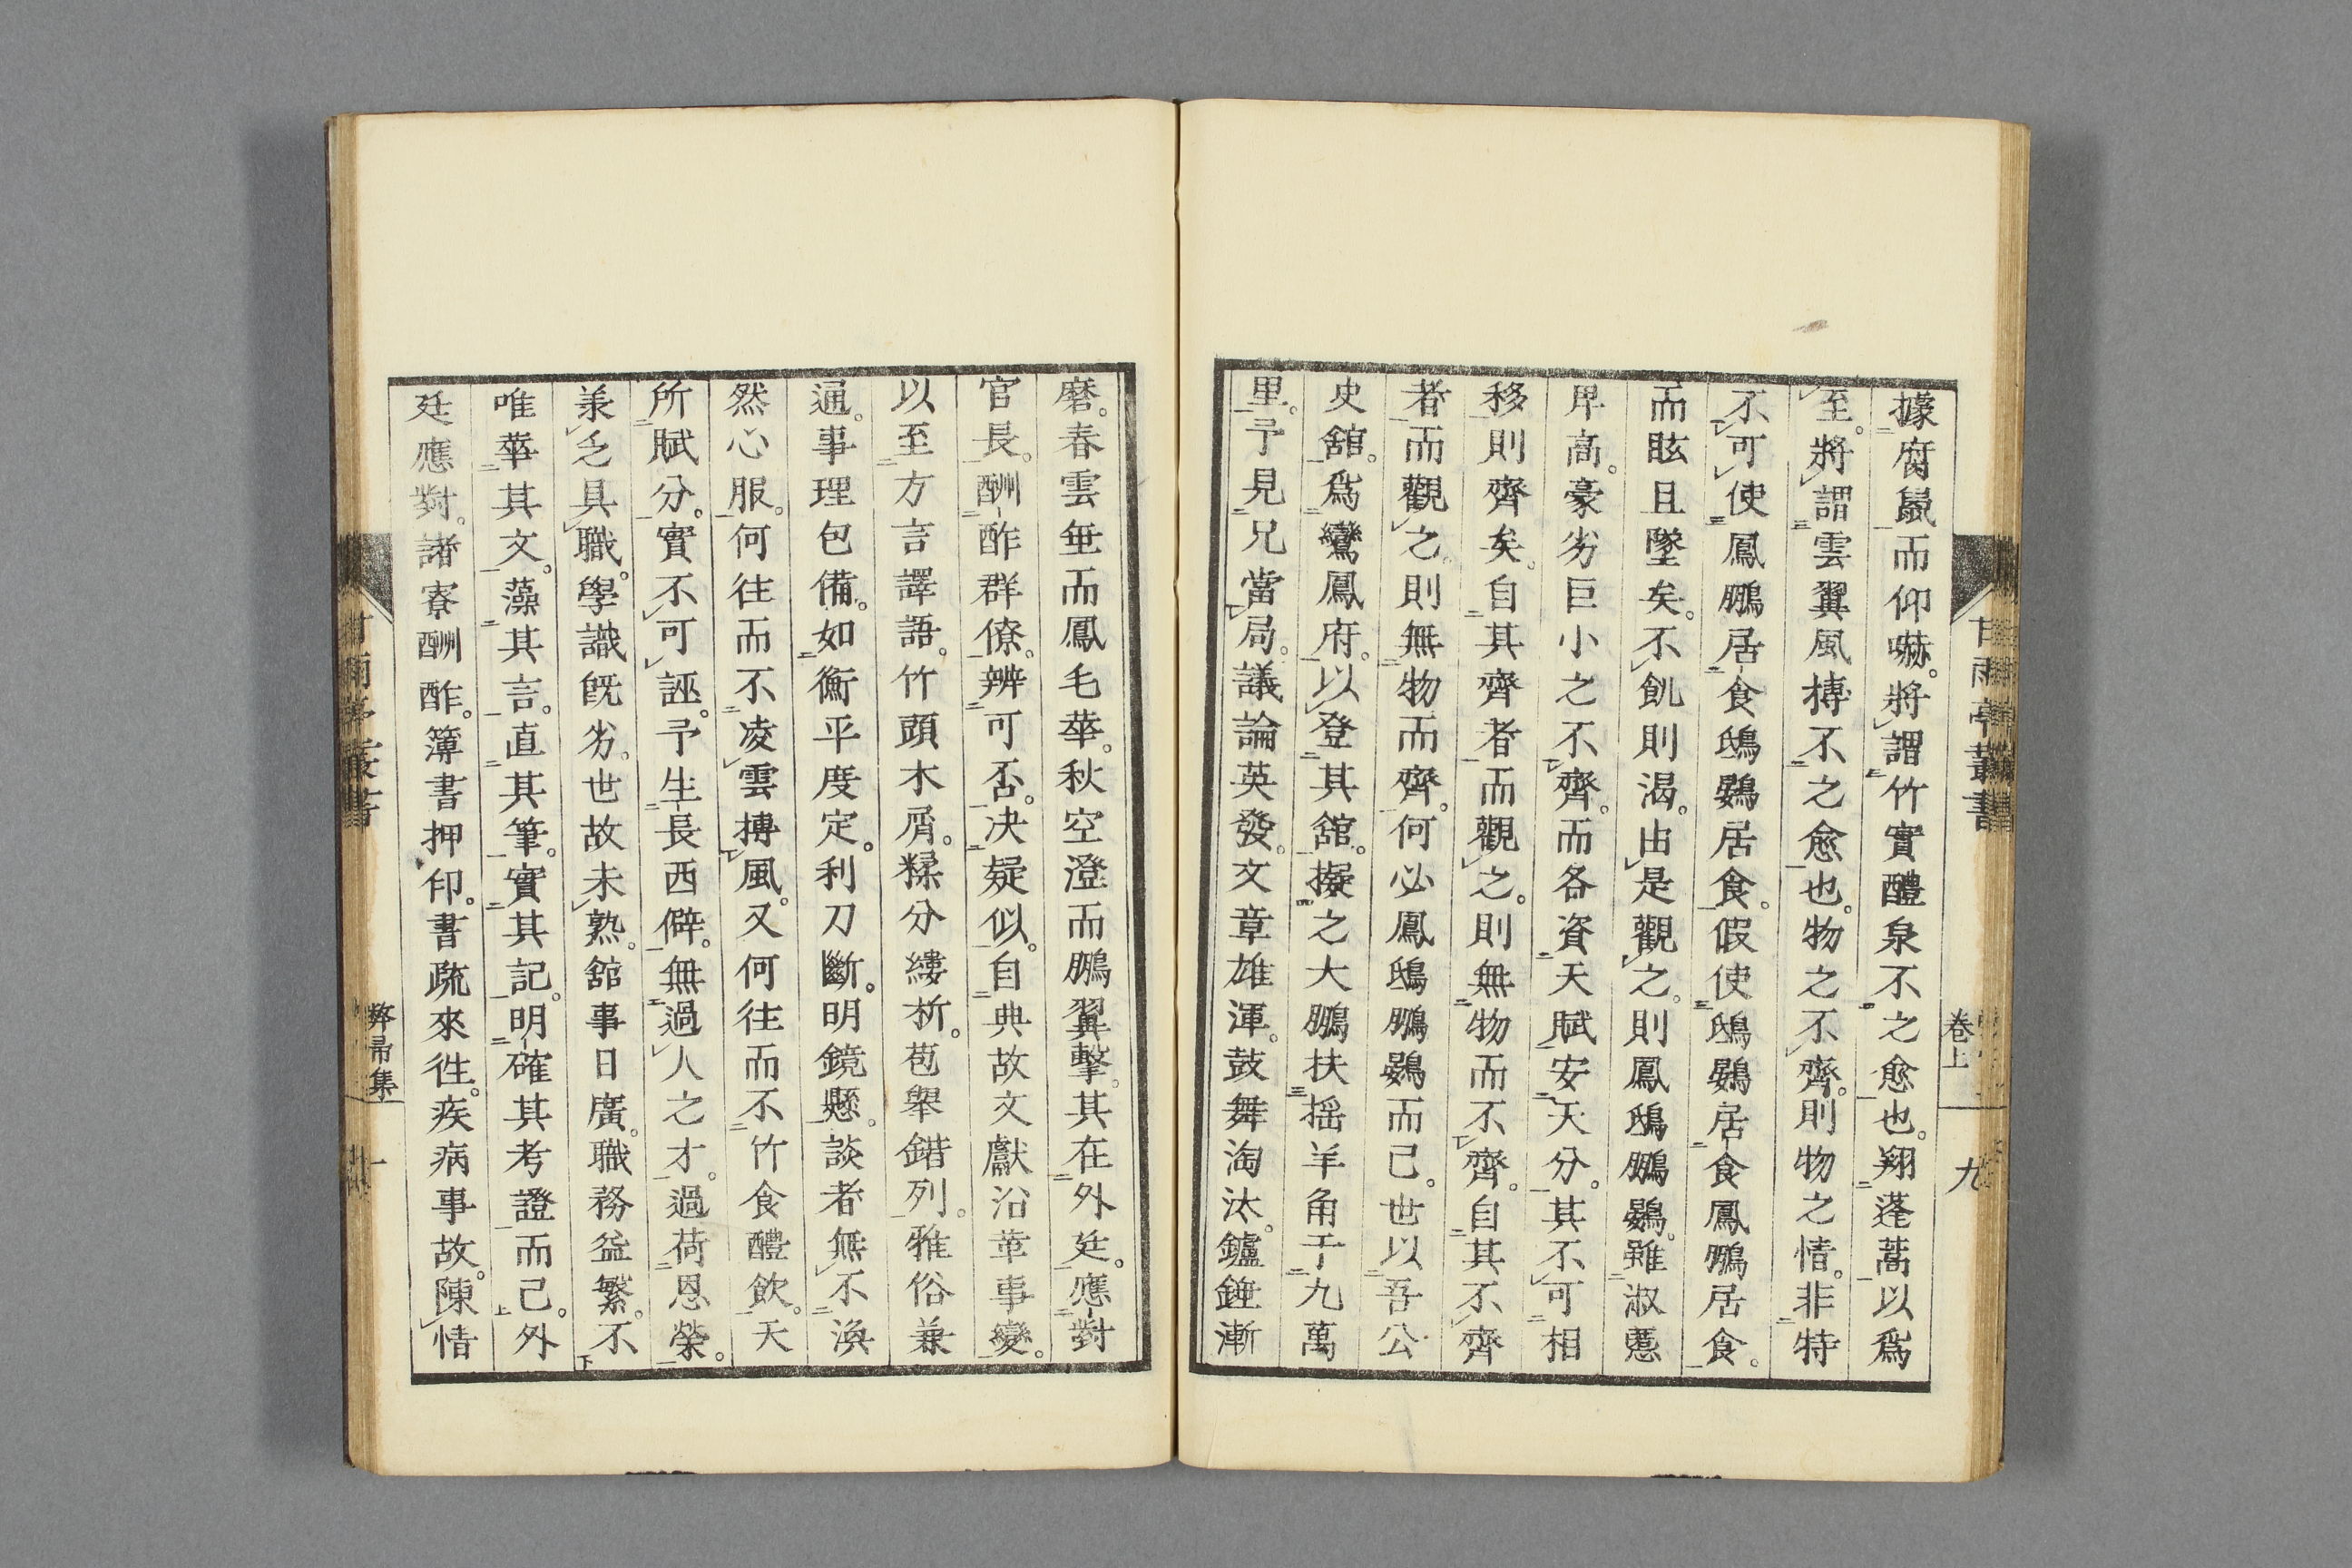 據腐鼠而仰嚇。將謂竹實醴泉不之愈也。翔蓬蒿以爲
至。將謂雲翼風摶不之愈也。物之不齊。則物之情。非特
不可使鳳鵬居食鴟鷃居食。假使鴟鷃居食鳳鵬居食。
而眩且墜矣。不飢則渴。由是觀之。則鳳鴟鵬鷃。雖淑慝
卑高。豪劣巨小之不齊。而各資天賦安天分。其不可相
移則齊矣。自其齊者而觀之。則無物而不齊。自其不齊
者而觀之。則無物而齊。何必鳳鴟鵬鷃而己。世以吾公
史舘。爲鸞鳳府。以登其舘。擬之大鵬扶搖羊角于九萬
里。予見兄當局。議論英發。文章雄渾。鼓舞淘汰。鑪錘漸
甘雨亭叢書
卷上
九
磨。春雲埀而鳳毛華。秋空澄而鵬翼擊。其在外廷。應對
官長。酬酢群僚。辨可否。决疑似。自典故文獻沿革事變。
以至方言譯語。竹頭木屑。糅分縷析。苞舉錯列。雅俗兼
通。事理包備。如衡平度定。利刀斷。明鏡懸。談者無不渙
然心服。何往而不凌雲摶風。又何往而不竹食醴飲。天
所賦分。實不可誣。予生長西僻。無過人之才。過荷恩榮。
兼乏具職。學識旣劣。世故未熟。舘事日廣。職務益繁。不
唯華其文。藻其言。直其筆。實其記。明確其考證而己。外
廷應對。諸寮酬酢。簿書押印。書疏來徃。疾病事故。陳情
弊帚集